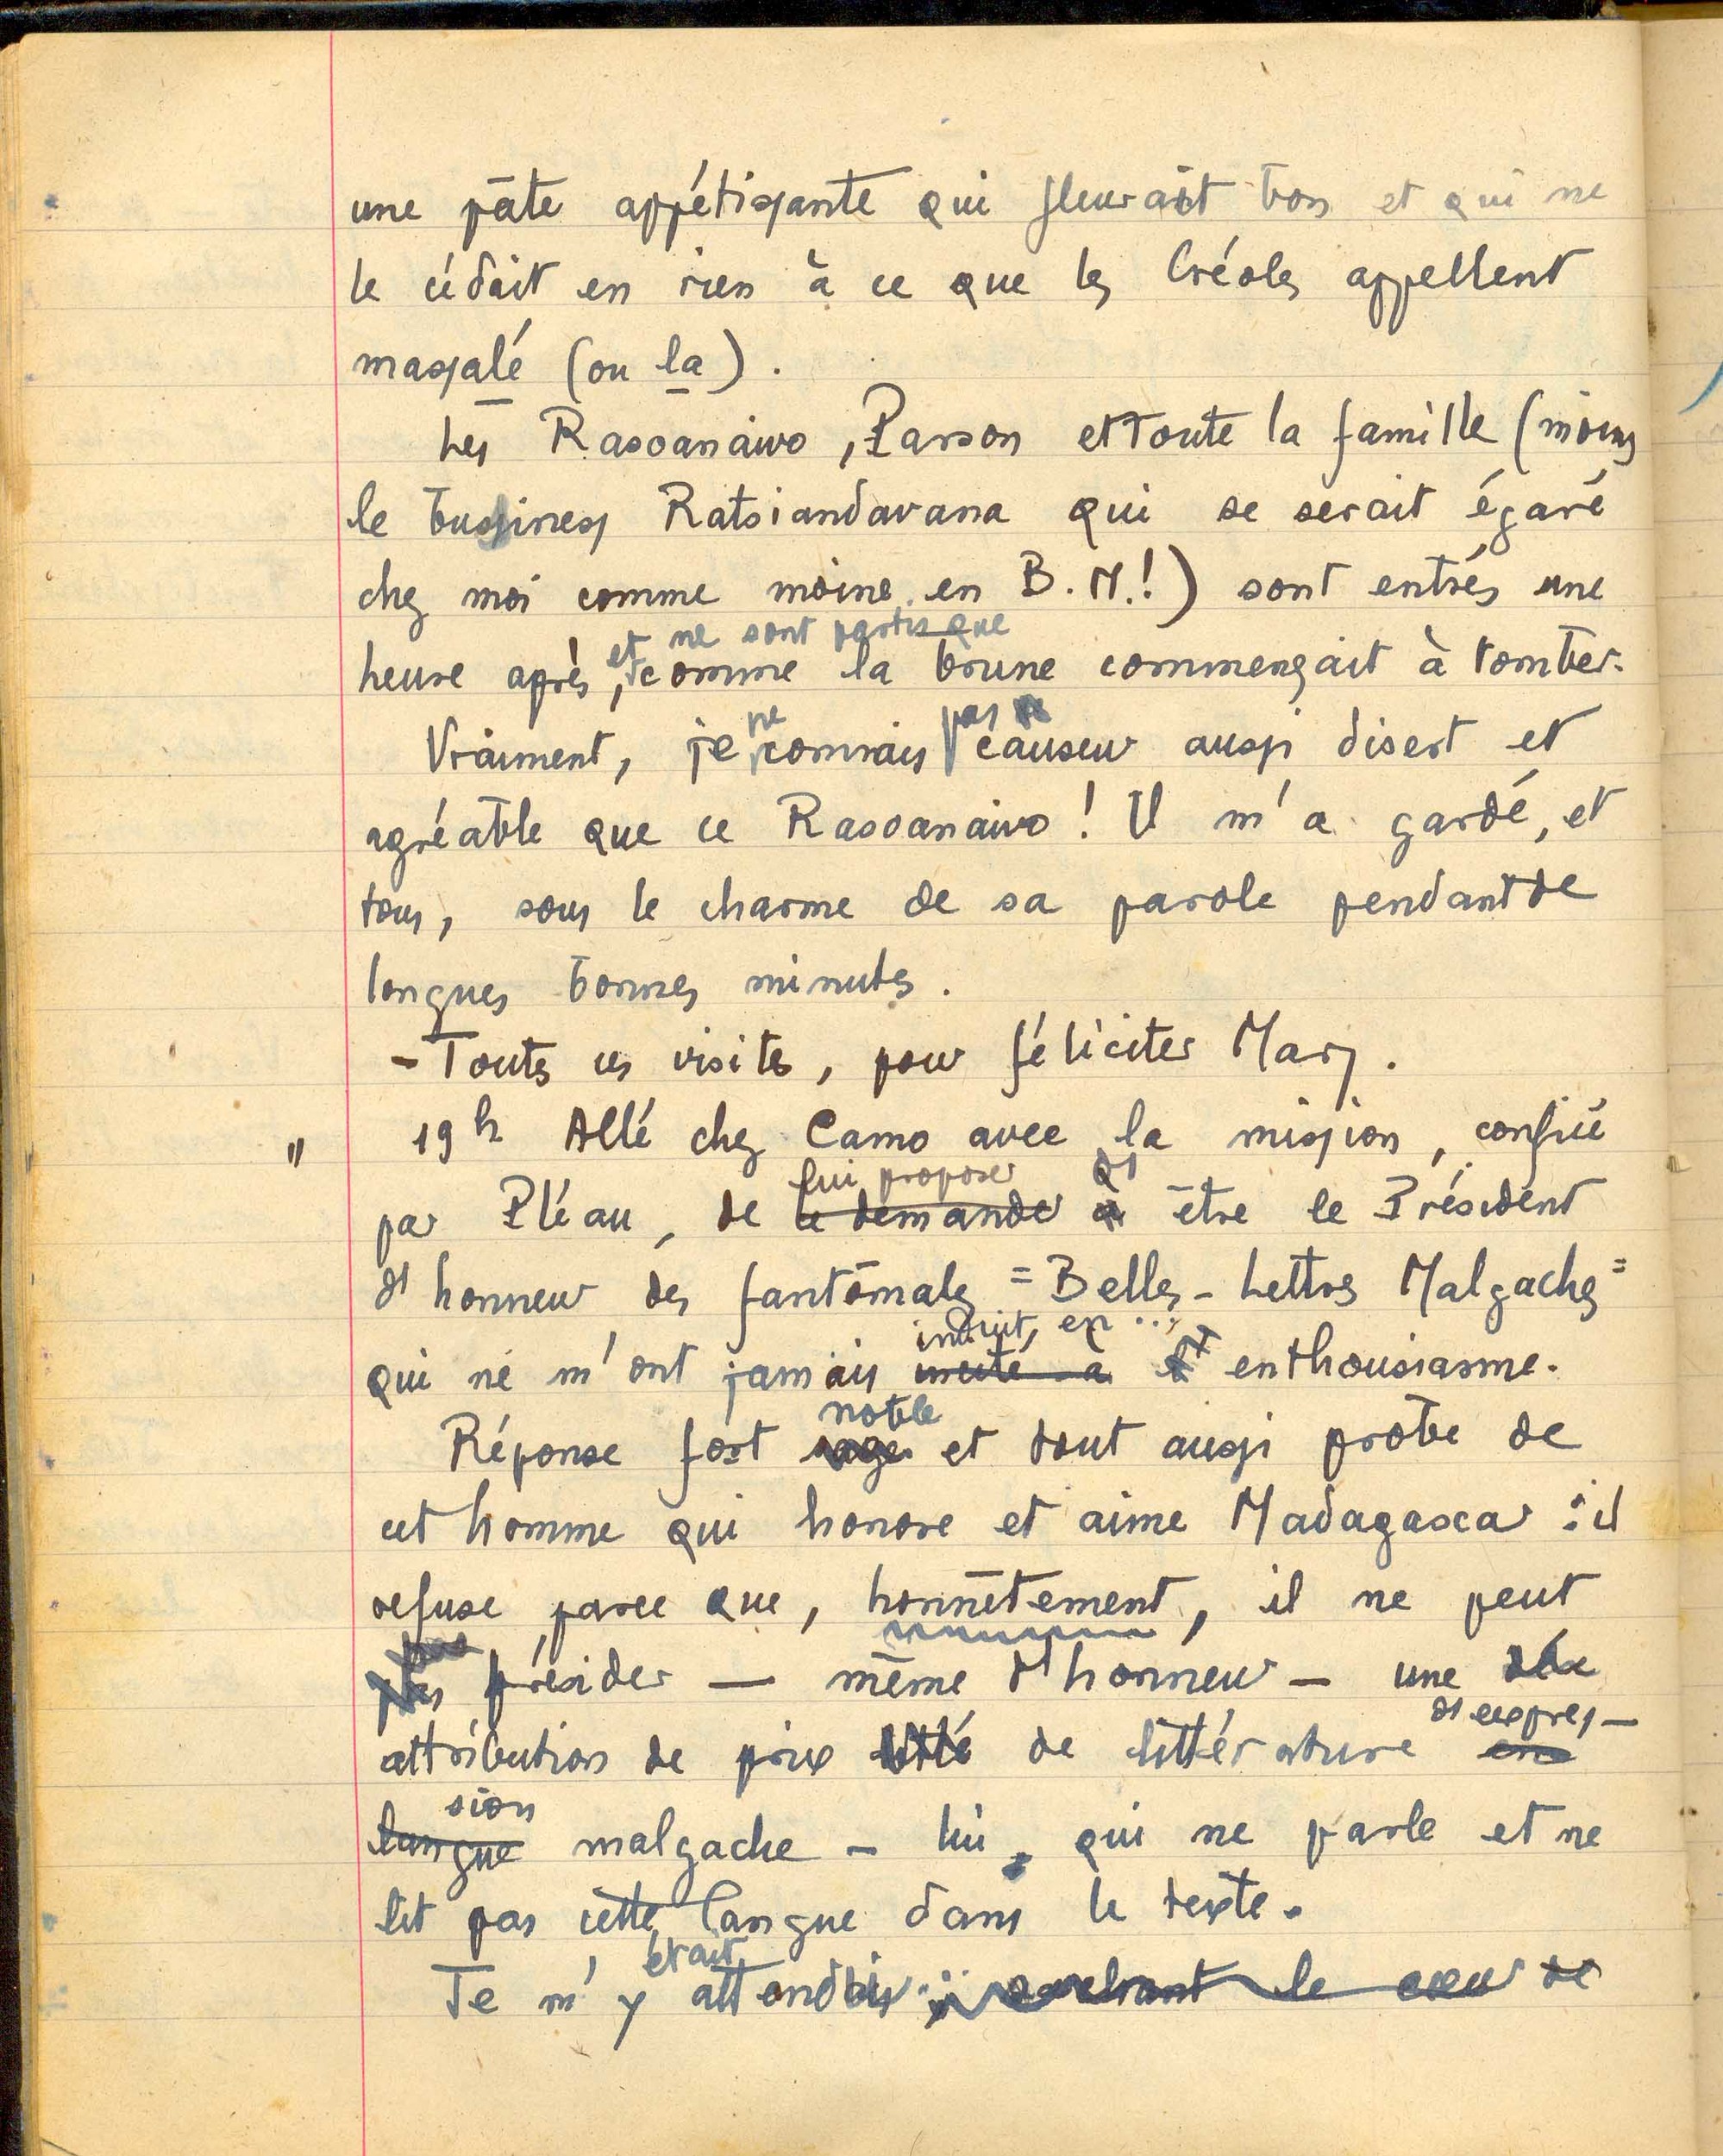 une pâte appétissante qui fleurait bon et qui ne
le cédait en rien à ce que les Créoles appellent
massalé (ou la).
Les Rasoanaivo, Parson et toute la famille (moins
le business Ratsiandavana qui se serait égaré
chez moi comme moine en B.M.!) sont entrés une
et ne sont partis que
heure après, comme la brune commençait à tomber.
ne pas
Vraiment, je connais causeur aussi disert et
agréable que ce Rasoanaivo! Il m'a gardé, et
tous, sous le charme de sa parole pendant de
longues bonnes minutes.
- Toutes ces visites, pour féliciter Mary.
" 19h Allé chez Camo avec la mission, confiée
lui proposer d'
par Pléau, de le demander à être le Président
d'honneur des fantômales = Belles-Lettres Malgaches =
induit, en ...
qui ne m'ont jamais incité à enthousiasme.
noble
Réponse fort sage et tout aussi probe de
cet homme qui honore et aime Madagascar : il
refuse parce que, honnêtement, il ne peut
pas présider — même d'honneur — une
d'expres-
attribution de prix litté de littérature en
sion
langue malgache - lui, qui ne parle et ne
lit pas cette langue dans le texte.
était
Je m'y attendais le cœur de